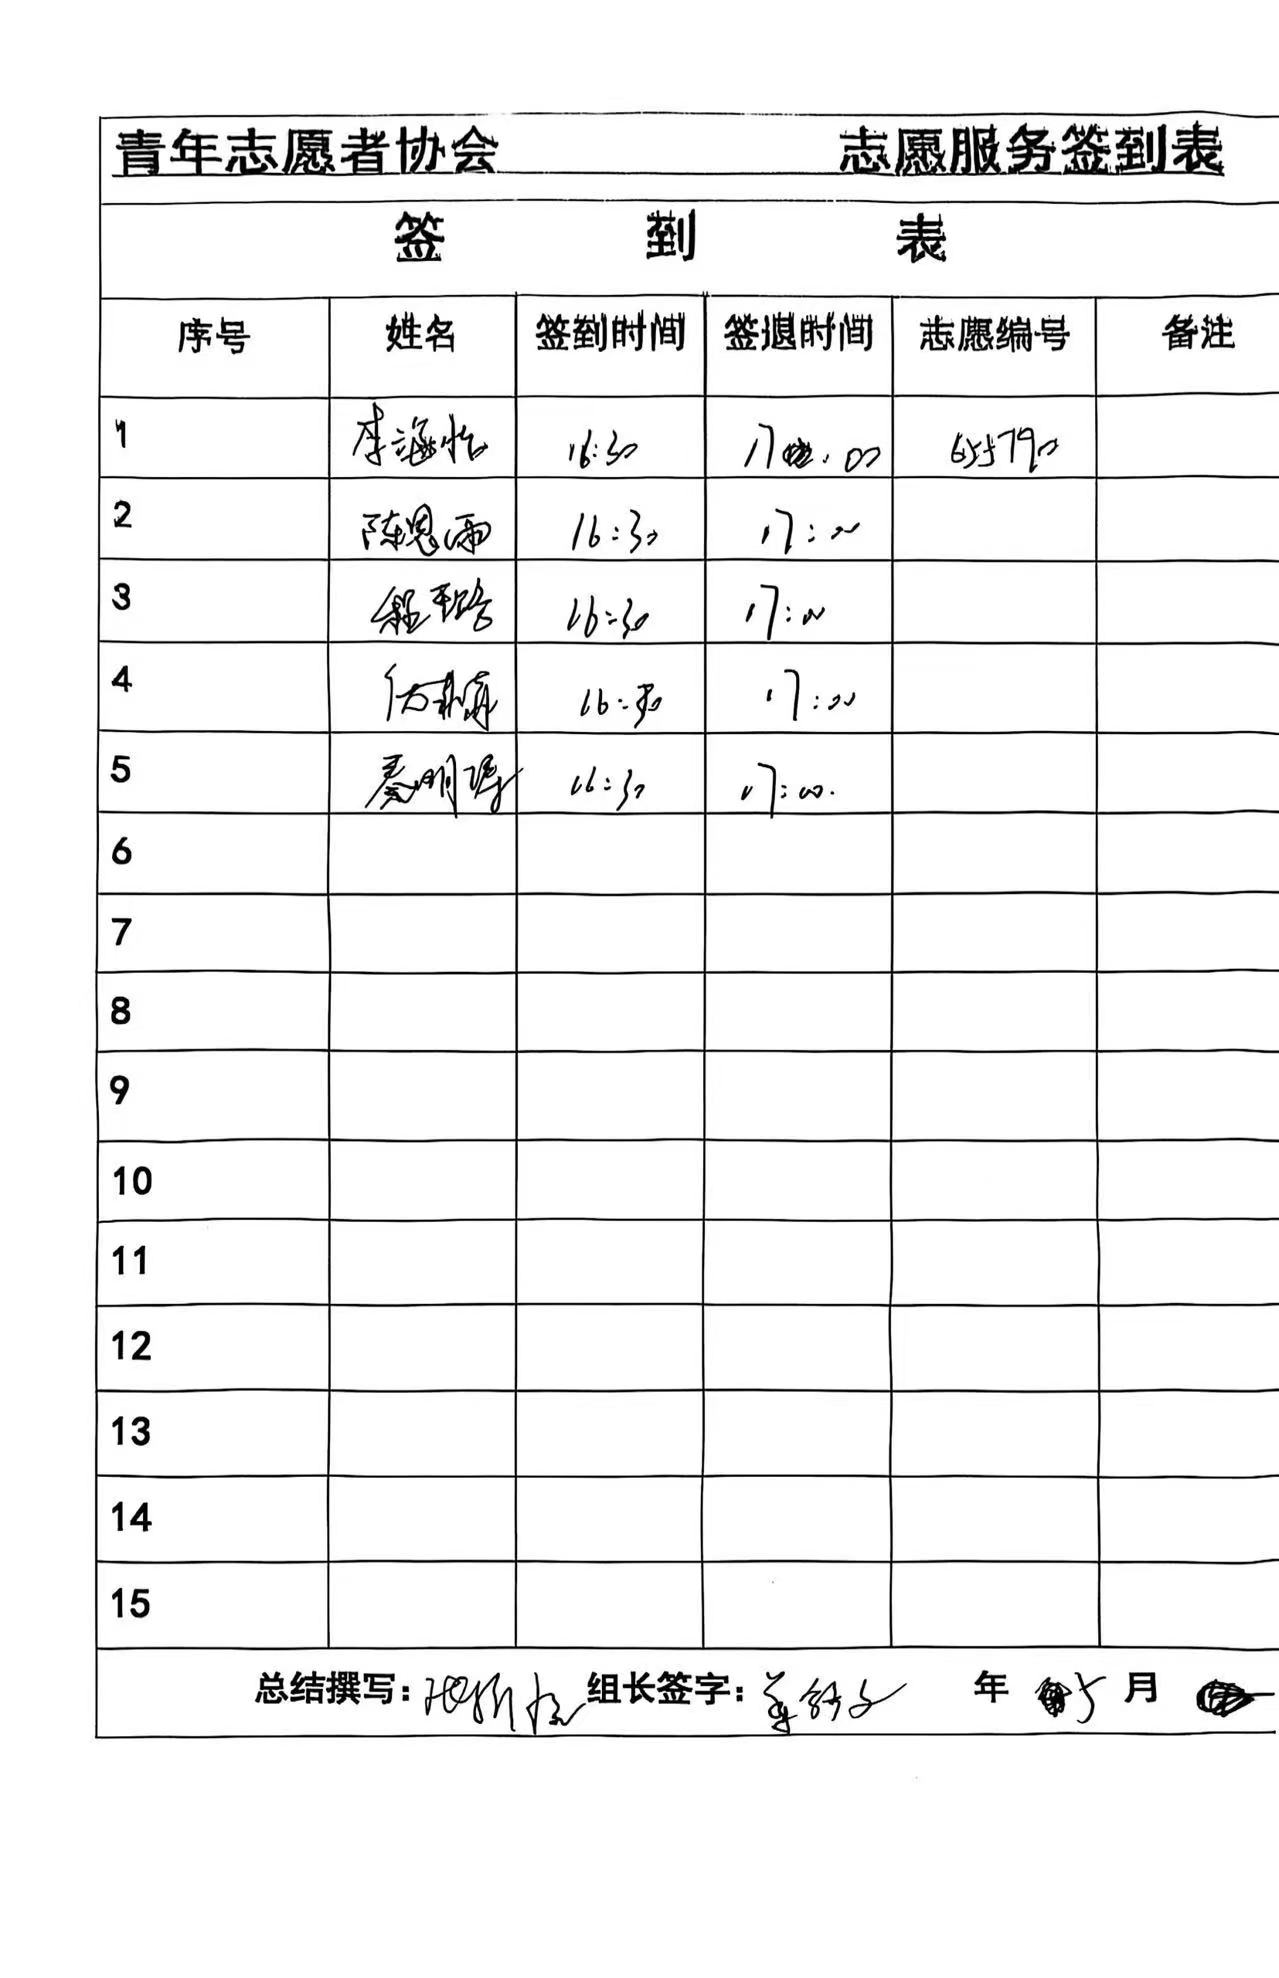 青年志愿者协会 志愿服务签到表
签 到 表
序号 姓名 签到时间 签退时间 志愿编号 备注
1 李海怡 16:30 17:00 655790
2 陈恩雨 16:30 17:00
3 程 16:30 17:00
4 16:30 17:00
5 秦明 16:30 17:00.
6
7
8
9
10
11
12
13
14
15
总结撰写: 组长签字: 年 5 月